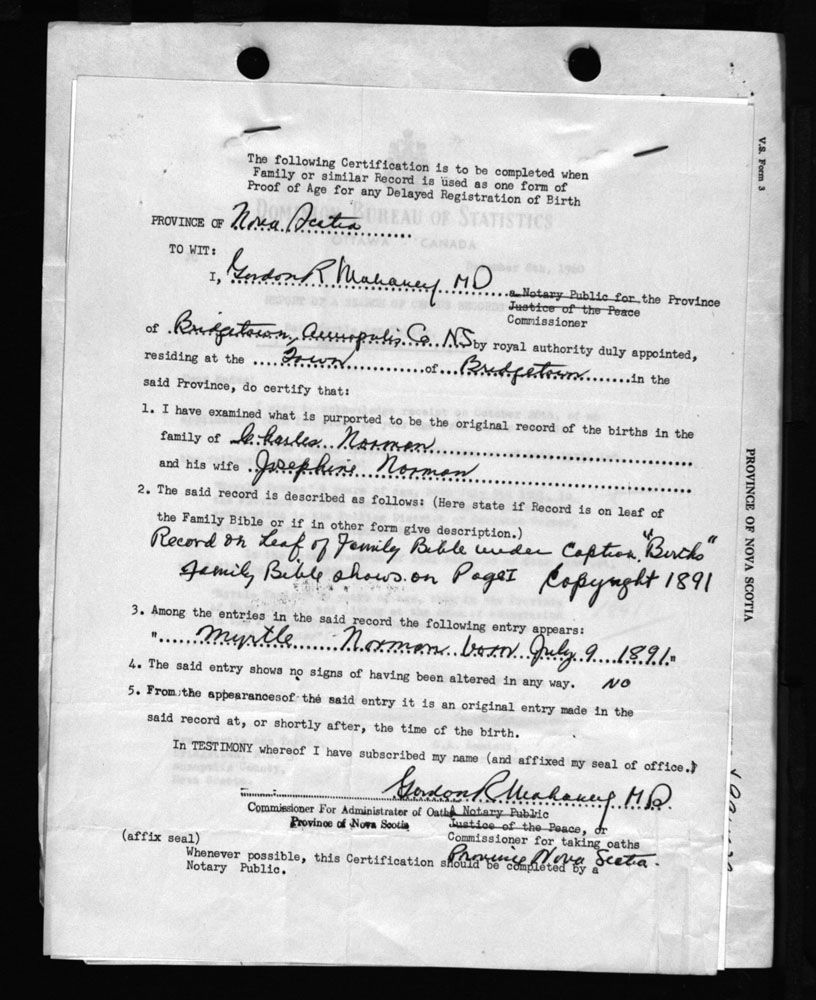 V.S. Form 3
PROVINCE OF NOVA SCOTIA
The following Certification is to be completed when
Family or similar Record is used as one form of
Proof of Age for any Delayed Registration of Birth
DOMINION BUREAU OF STATISTICS
OTTAWA - CANADA
PROVINCE OF Nova Scotia
TO WIT:
I, Gordon R Mahaney MD a Notary Public for the Province
Justice of the Peace
Commissioner
of Bridgetown, Annapolis Co. NS by royal authority duly appointed,
residing at the Town of Bridgetown in the
said Province, do certify that:
1. I have examined what is purported to be the original record of the births in the
family of Charles Norman
and his wife Josephine Norman
2. The said record is described as follows: (Here state if Record is on leaf of
the Family Bible or if in other form give description.)
Record on Leaf of Family Bible under Caption "Births"
Family Bible shows on Page I Copyright 1891
3. Among the entries in the said record the following entry appears:
"Myrtle Norman born July 9 1891."
4. The said entry shows no signs of having been altered in any way. NO
5. From the appearances of the said entry it is an original entry made in the
said record at, or shortly after, the time of the birth.
In TESTIMONY whereof I have subscribed my name (and affixed my seal of office.)
Gordon R Mahaney MD.
Commissioner For Administrater of Oaths A Notary Public
Province of Nova Scotia Justice of the Peace, or
(affix seal) Commissioner for taking oaths
Province Nova Scotia.
Whenever possible, this Certification should be completed by a
Notary Public.